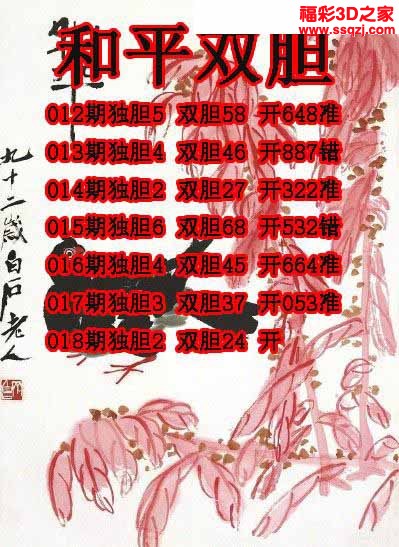 福彩3D之家
www.ssqzj.com
和平双胆
012期独胆5 双胆58 开648准
013期独胆4 双胆46 开887错
014期独胆2 双胆27 开322准
015期独胆6 双胆68 开532错
016期独胆4 双胆45 开664准
017期独胆3 双胆37 开053准
018期独胆2 双胆24 开
九十二岁白石老人